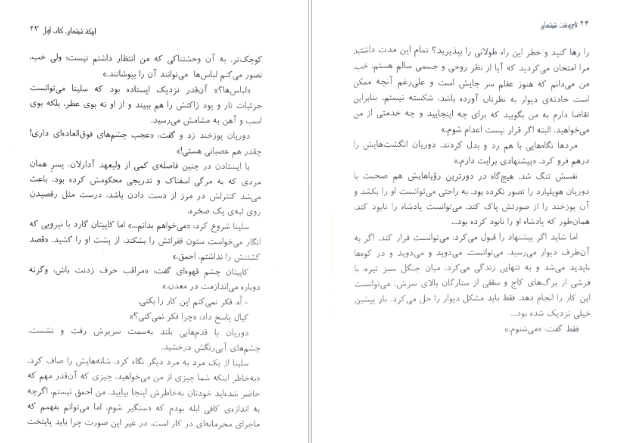 اینک شیشه‌ای، کتاب اول ۲۳
کوچک‌تر. به آن وحشتناکی که من انتظار داشتم نیست؛ ولی خب،
تصور می‌کنم لباس‌ها می‌توانند آن را بپوشانند.»
«لباس‌ها؟» آن‌قدر نزدیک ایستاده بود که سلینا می‌توانست
جزئیات تار و پود ژاکتش را هم ببیند و از او نه بوی عطر، بلکه بوی
اسب و آهن به مشامش می‌رسید.
دوریان پوزخند زد و گفت: «عجب چشم‌های فوق‌العاده‌ای داری!
چقدر هم عصبانی هستی!»
با ایستادن در چنین فاصله‌ی کمی از ولیعهد آدارلان، پسر همان
مردی که به مرگی اسفناک و تدریجی محکومش کرده بود، باعث
می‌شد کنترلش در مرز از دست دادن باشد، درست مثل رقصیدن
روی لبه‌ی یک صخره.
سلینا شروع کرد: «می‌خواهم بدانم...» اما کاپیتان گارد با نیرویی که
انگار می‌خواست ستون فقراتش را بشکند، از پشت او را کشید. «قصد
کشتنش را نداشتم، احمق.»
کاپیتان چشم قهوه‌ای گفت: «مراقب حرف زدنت باش، وگرنه
دوباره می‌اندازمت در معدن.»
- اُه، فکر نمی‌کنم این کار را بکنی.
کیال پاسخ داد: «چرا فکر نمی‌کنی؟»
دوریان با قدم‌هایی بلند به‌سمت سریرش رفت و نشست.
چشم‌های آبی‌رنگش درخشید.
سلینا از یک مرد به مرد دیگر نگاه کرد. شانه‌هایش را صاف کرد.
«به‌خاطر اینکه شما چیزی از من می‌خواهید. چیزی که آن‌قدر مهم که
حاضر شده‌اید خودتان به‌خاطرش اینجا بیایید. من احمق نیستم، اگرچه
به اندازه‌ی کافی ابله بودم که دستگیر شوم، اما می‌توانم بفهمم که
ماجرای محرمانه‌ای در کار است. در غیر این صورت چرا باید پایتخت
۲۴ تاج‌وتخت شیشه‌ای
را رها کنید و خطر این راه طولانی را بپذیرید؟ تمام این مدت داشتید
مرا امتحان می‌کردید که آیا از نظر روحی و جسمی سالم هستم. خب،
من می‌دانم که هنوز عقلم سر جایش است و علی‌رغم آنچه ممکن
است حادثه‌ی دیوار به نظرتان آورده باشد، شکسته نیستم. بنابراین
تقاضا دارم به من بگویید که برای چه اینجایید و چه خدمتی از من
می‌خواهید. البته اگر قرار نیست اعدام شوم.»
مردها نگاه‌هایی با هم رد و بدل کردند. دوریان انگشت‌هایش را
درهم فرو کرد. «پیشنهادی برایت دارم.»
نفسش تنگ شد. هیچ‌گاه در دورترین رؤیاهایش هم صحبت با
دوریان هویلیارد را تصور نکرده بود. به راحتی می‌توانست او را بکشد و
آن پوزخند را از صورتش پاک کند. می‌توانست پادشاه را نابود کند.
همان‌طور که پادشاه او را نابود کرده بود...
اما شاید اگر پیشنهاد را قبول می‌کرد، می‌توانست فرار کند. اگر به
آن‌طرف دیوار می‌رسید. می‌توانست. می‌دوید و می‌دوید و در کوه‌ها
ناپدید می‌شد و به تنهایی زندگی می‌کرد. میان جنگل سبز تیره، با
فرشی از برگ‌های کاج و سقفی از ستارگان بالای سرش. می‌توانست
این کار را انجام دهد. فقط باید مشکل دیوار را حل می‌کرد. بار پیشین
خیلی نزدیک شده بود...
فقط گفت: «می‌شنوم.»